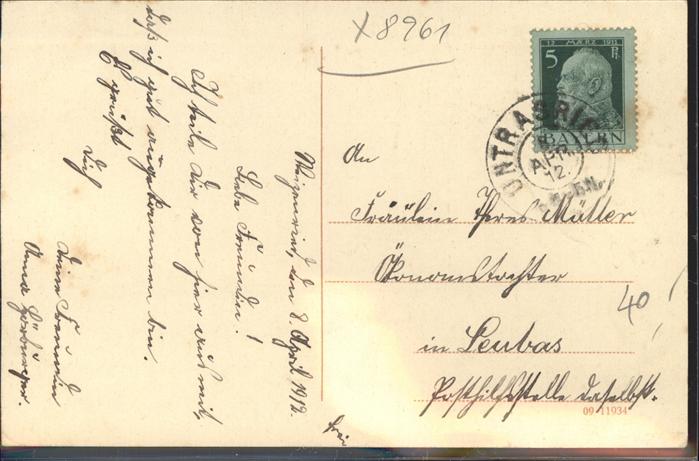 x 8961
17 MÆRZ 1911
5 Pf.
BAYERN
UNTRASRIED
APR
12
Weizenried, den 8. April 1912.
Liebe Freundin!
Ich teile Dir von hier aus mit,
daß ich gut angekommen bin.
Es grüßt
Dich
Deine Freundin
Anna
An
Fräulein Theres Müller
Ökonomstochter
in Leubas
Posthilfsstelle daselbst.
frei
40
09-11934